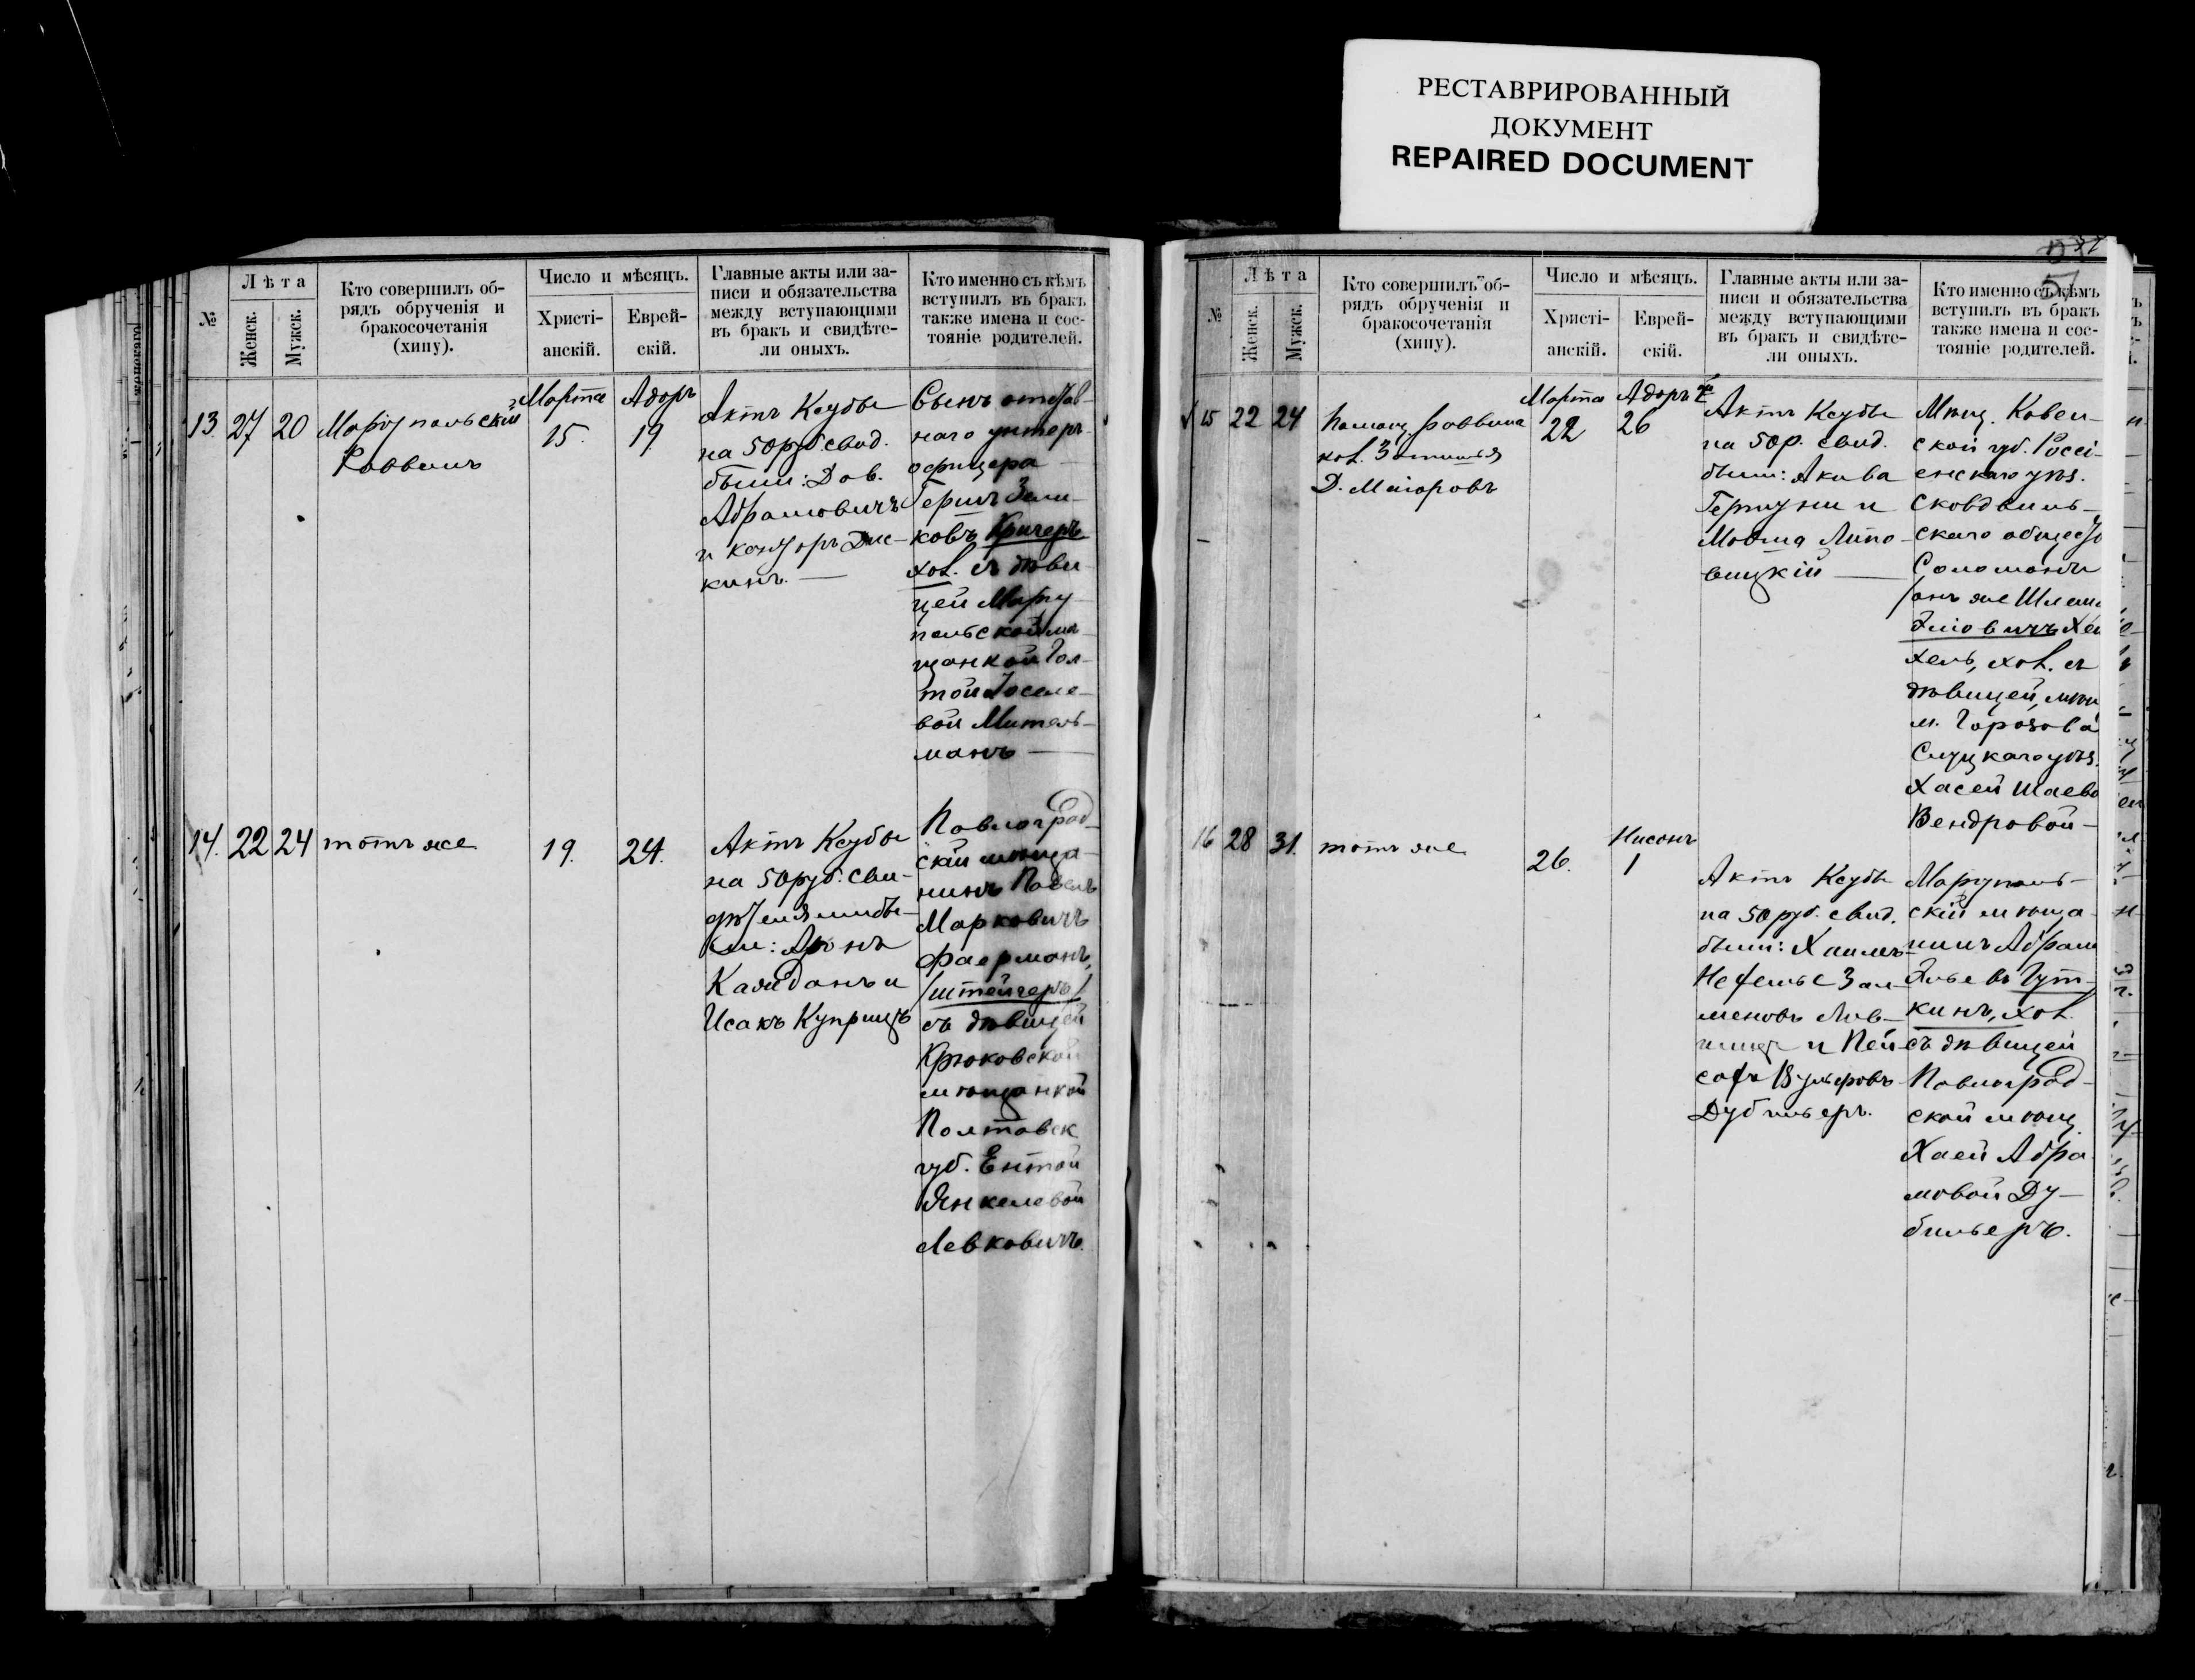 РЕСТАВРИРОВАННЫЙ
ДОКУМЕНТ
REPAIRED DOCUMENT
№
Лѣта
Женск.
Мужск.
Кто совершилъ об-
рядъ обрученія и
бракосочетанія
(хипу).
Число и мѣсяцъ.
Христі-
анскій.
Еврей-
скій.
Главные акты или за-
писи и обязательства
между вступающими
въ бракъ и свидѣте-
ли оныхъ.
Кто именно съ кѣмъ
вступилъ въ бракъ
также имена и сос-
тояніе родителей.
13. 27 20
Маріупольскій
Раввинъ
Марта
15.
Адаръ
19.
Актъ Ксубы
на 50 руб. свид.
были: Дов.
Абрамовичъ
и
кинъ.
Сынъ отстав-
наго унтеръ
офицера
Гершъ Зали-
ковъ Кричеръ
хол. съ дѣви-
цей Маріу
польской мѣ
щанкой Гол-
той Іоселе-
вой Митель-
манъ
14. 22 24
тотъ же
19.
24.
Актъ Ксубы
на 50 руб. Сви-
дѣтелями бы-
ли: Аронъ
и
Исакъ Купришъ
Павлоград-
скій мѣща-
нинъ Павелъ
Марковичъ
Фаерманъ,
/штейгеръ/
съ дѣвицей
Крюковской
мѣщанкой
Полтавск
губ. Ентой
Янкелевой
Левковичъ.
№
Лѣта
Женск.
Мужск.
Кто совершилъ об-
рядъ обрученія и
бракосочетанія
(хипу).
Число и мѣсяцъ.
Христі-
анскій.
Еврей-
скій.
Главные акты или за-
писи и обязательства
между вступающими
въ бракъ и свидѣте-
ли оныхъ.
Кто именно съ кѣмъ
вступилъ въ бракъ
также имена и сос-
тояніе родителей.
15 22 24
Помощ. раввина
кол. Затишья
Д. Маіоровъ
Марта
22
Адаръ
26
Актъ Ксубы
на 50 р. свид.
были: Акива
Гершуни и
Мовша Липо-
вицкій
Мѣщ. Ковен-
ской губ. Россі-
енскаго уѣз.
Сковдвиль-
скаго общест
Соломонъ
/онъ же Шлема
хель, хол. съ
дѣвицей, мѣщ
м.
Слуцкаго уѣз.
Хасей Шаево
Вендровой-
16 28 31.
тотъ же
26.
Нисанъ
1
Актъ Ксубы
на 50 руб. свид.
были: Хаимъ-
Зал-
меновъ
и Пей-
сахъ Вульфовъ
Дубильеръ.
Маріуполь-
скій мѣща-
нинъ Абрам
Эльевъ Гут-
кинъ, хол.
съ дѣвицей
Павлоград-
ской мѣщ.
Хаей Абра
мовой Ду-
бильеръ.